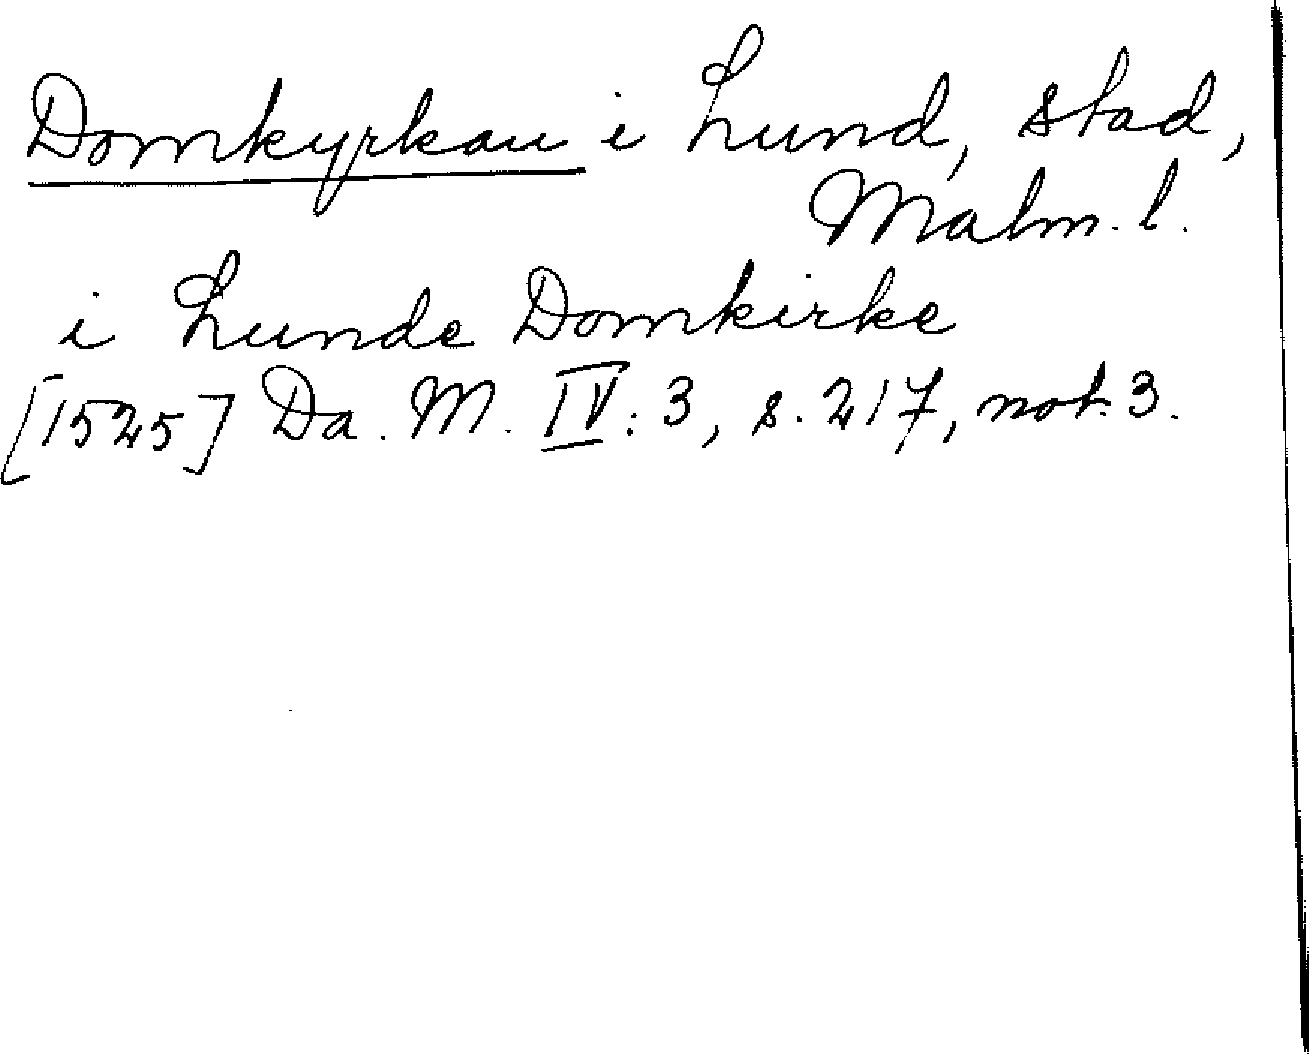 Domkyrkan i Lund, stad,
Malm. l.
i Lunde Domkirke
[1525] Da. M. IV: 3, s. 217, not. 3.